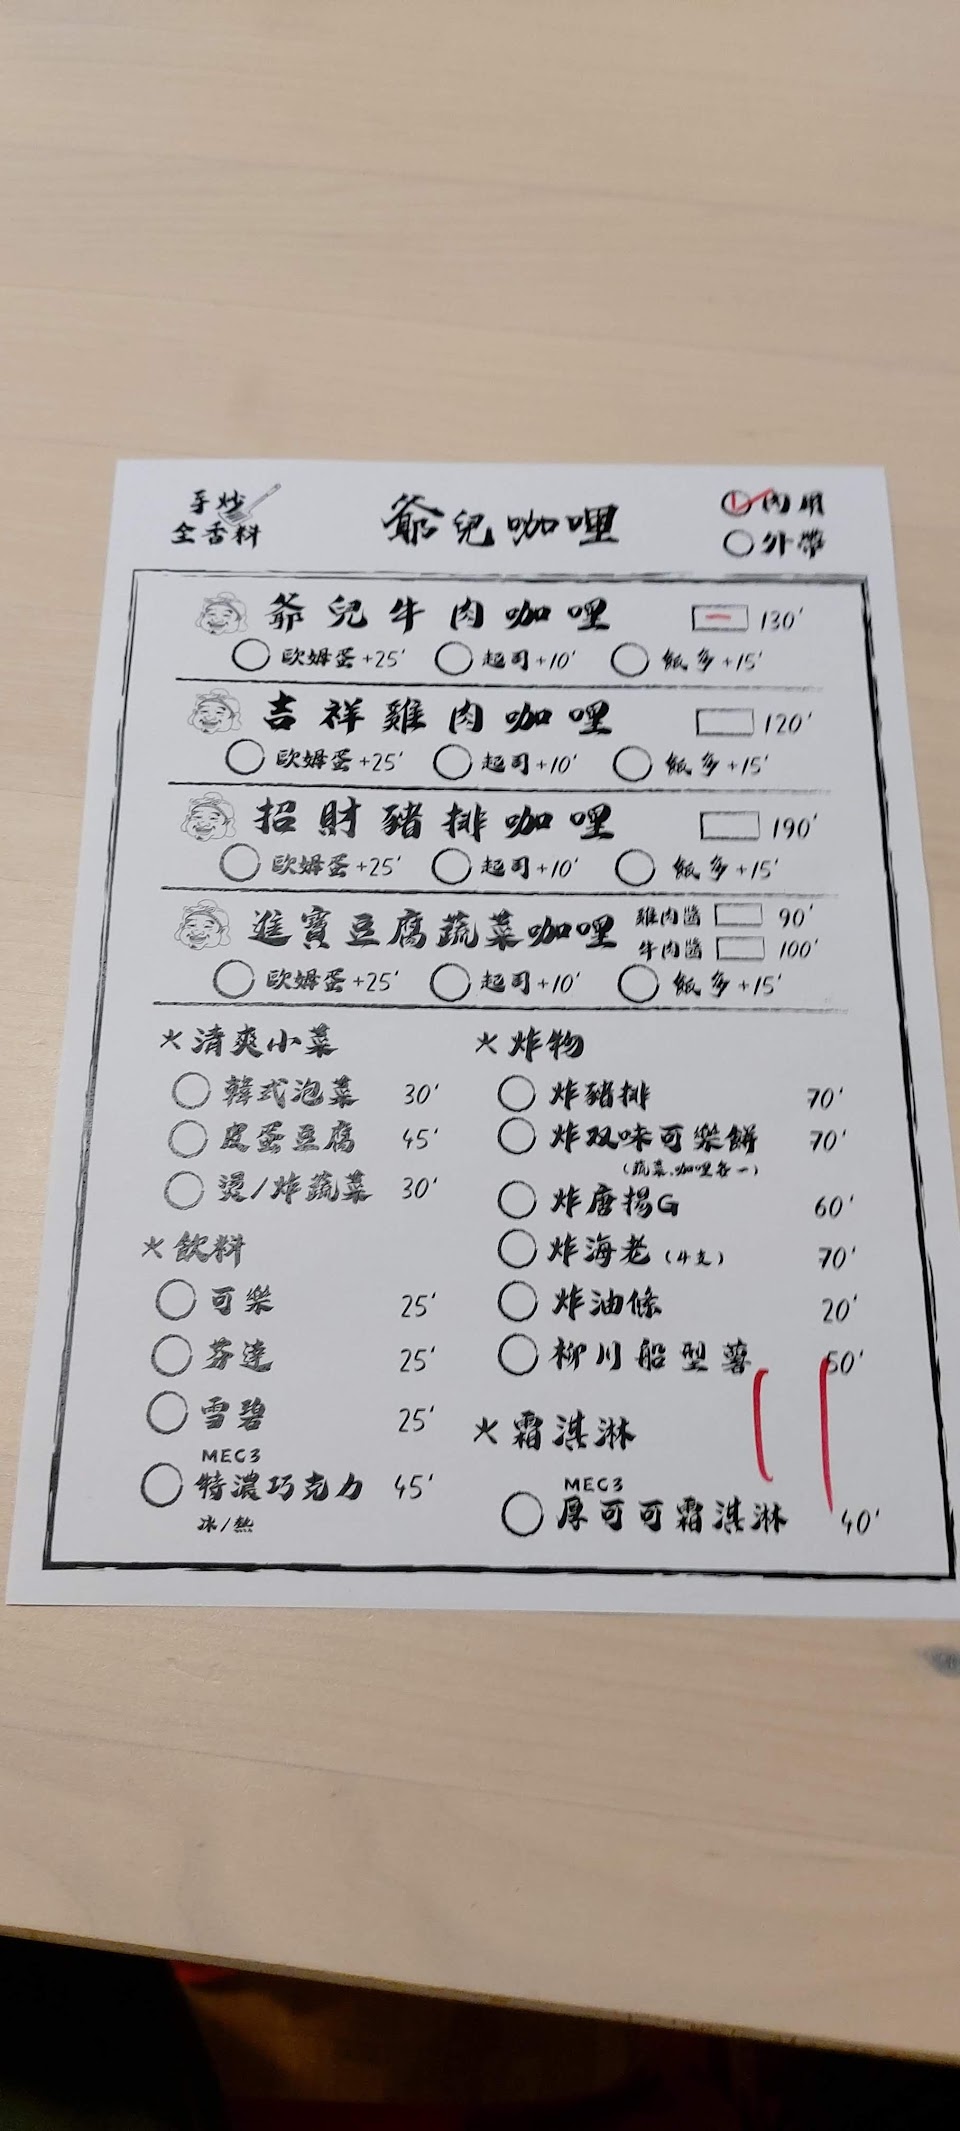 手炒
全香料
爺兒咖哩
內用
外帶
爺兒牛肉咖哩 一 130'
歐姆蛋+25' 起司+10' 飯多+15'
吉祥雞肉咖哩 120'
歐姆蛋+25' 起司+10' 飯多+15'
招財豬排咖哩 190'
歐姆蛋+25' 起司+10' 飯多+15'
進寶豆腐蔬菜咖哩 雞肉醬 90'
牛肉醬 100'
歐姆蛋+25' 起司+10' 飯多+15'
*清爽小菜
韓式泡菜 30'
皮蛋豆腐 45'
燙/炸蔬菜 30'
*飲料
可樂 25'
芬達 25'
雪碧 25'
MEC3
特濃巧克力 45'
冰/熱
*炸物
炸豬排 70'
炸双味可樂餅 70'
(蔬菜.咖哩各一)
炸唐揚G 60'
炸海老(4支) 70'
炸油條 20'
柳川船型薯 50'
*霜淇淋
MEC3
厚可可霜淇淋 40'